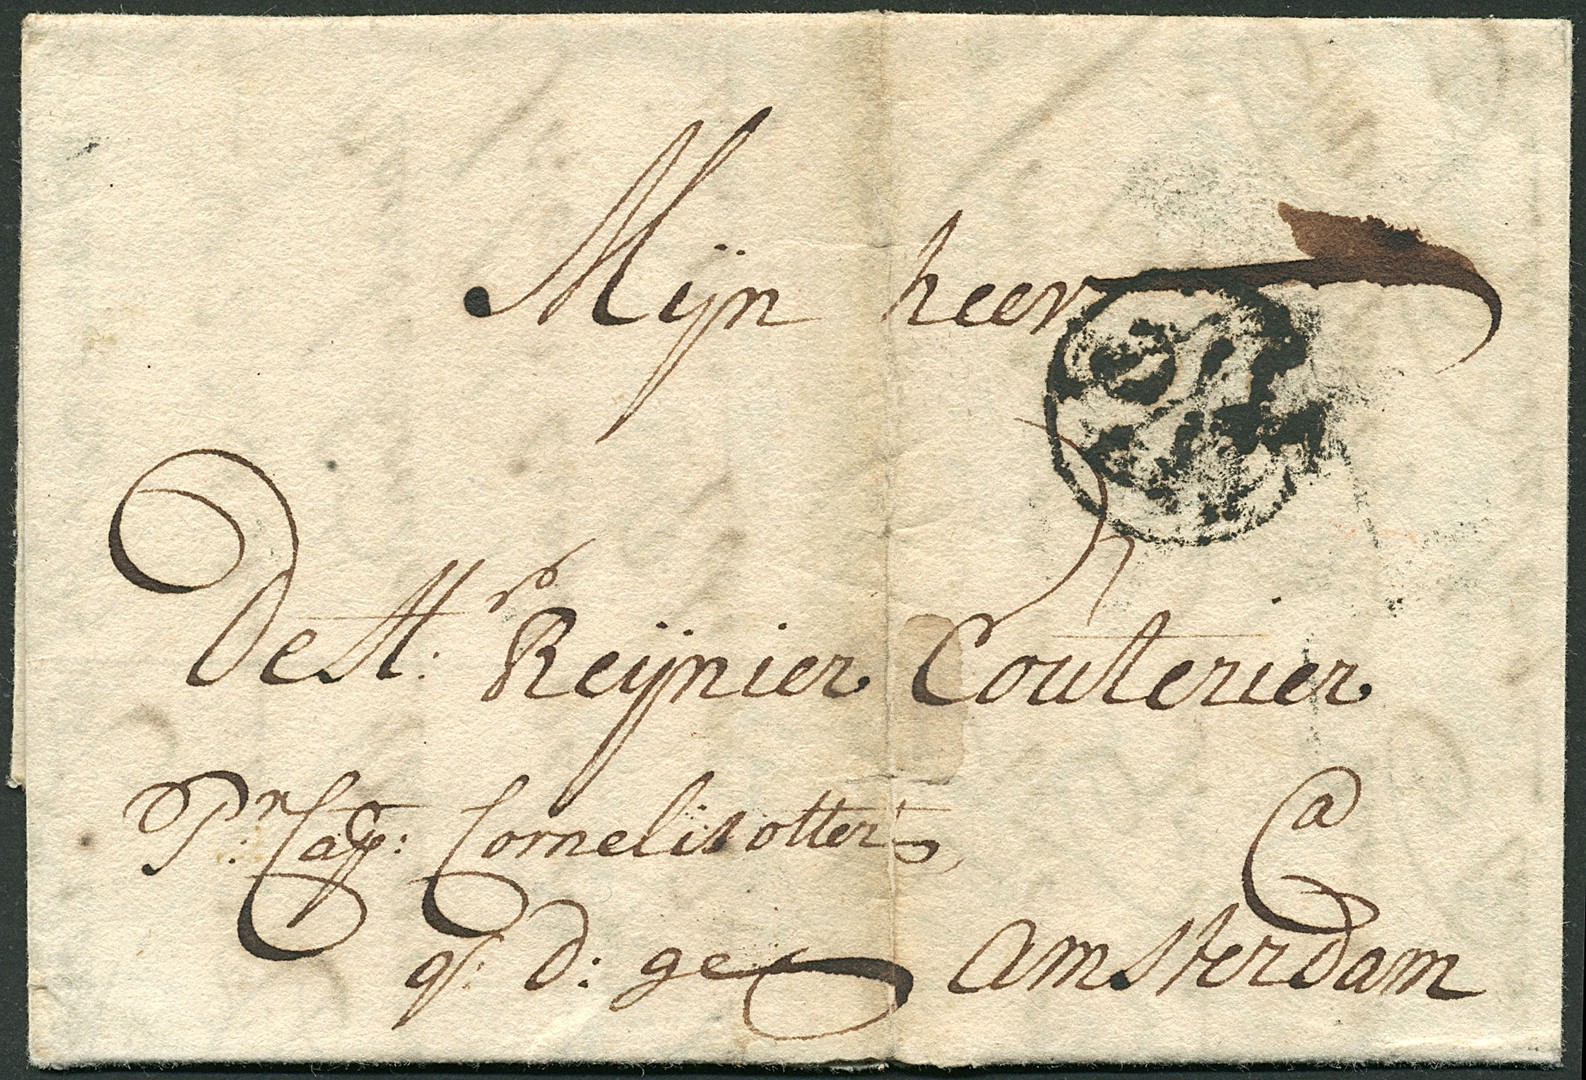 Mijn heer
De Hr: Reijnier Couterier
Pr: Cap: Cornelis otter
a
qs: d: ge Amsterdam